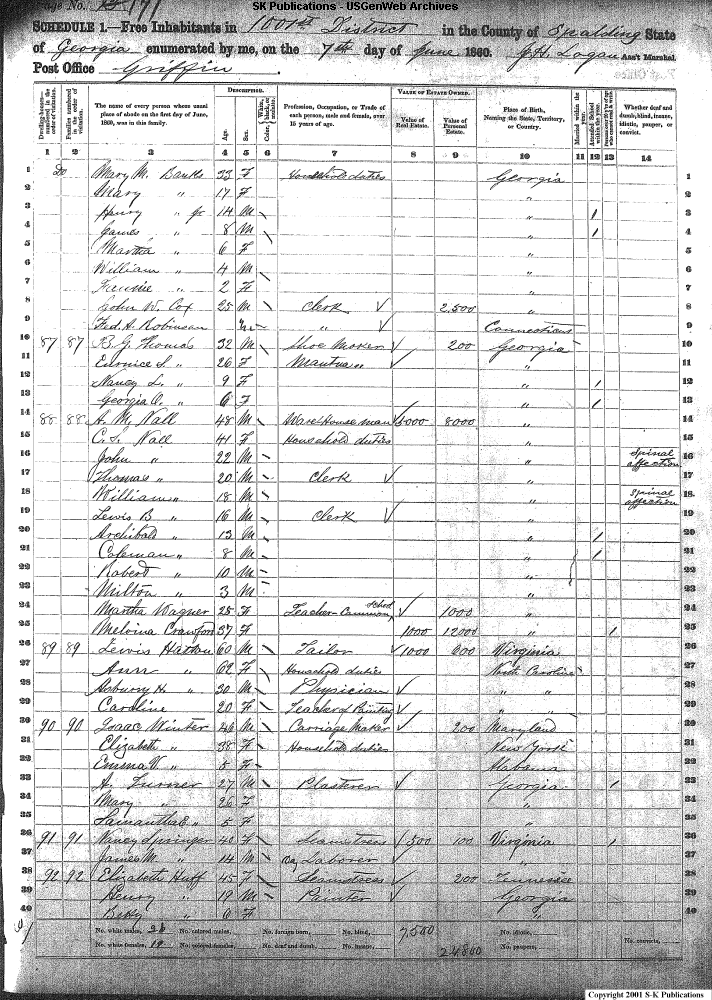 SK Publications - USGenWeb Archives
Page No. 171
SCHEDULE 1.—Free Inhabitants in 1001st District in the County of Spalding State
of Georgia enumerated by me, on the 7th day of June 1860. Ass't Marshal.
Post Office Griffin
DESCRIPTION. VALUE OF ESTATE OWNED.
The name of every person whose usual place of abode on the first day of June, 1860, was in this family. Age. Sex. Profession, Occupation, or Trade of each person, male and female, over 15 years of age. Value of Real Estate. Value of Personal Estate. Place of Birth, Naming the State, Territory, or Country. Married within the year. Attended School within the year. Whether deaf and dumb, blind, insane, idiotic, pauper, or convict.
1 2 3 4 5 6 7 8 9 10 11 12 13 14
1 Do Mary M. Banks 33 F Household duties Georgia 1
2 Mary " 17 F " 2
3 Henry " Jr 14 M " / 3
4 James " 8 M " / 4
5 Martha " 6 F " 5
6 William " 4 M " 6
7 " 2 F " 7
8 John W. Cox 25 M Clerk 2,500 " 8
9 Fred. A. Robinson " Connecticut 9
10 87 87 B. G. Thomas 32 M Shoe Maker 200 Georgia 10
11 Eunice S. " 26 F Mantua " " 11
12 Nancy L. " 9 F " / 12
13 Georgia O. " 6 F " / 13
14 88 88 A. M. Nall 48 M Ware House man 8000 " 14
15 C. S. Nall 41 F Household duties " 15
16 John " 22 M " Spinal affection 16
17 Thomas " 20 M Clerk " 17
18 William " 18 M " Spinal affection 18
19 Lewis B " 16 M Clerk " 19
20 Archibald " 13 M " / 20
21 Coleman " 8 M " / 21
22 Robert " 10 M " 22
23 Milton " 3 M " 23
24 Martha Wagner 25 F Teacher Common School 1000 " 24
25 Melvina 37 F 1000 12000 " / 25
26 89 89 Lewis 60 M Tailor 1000 600 Virginia 26
27 Ann " 62 F Household duties North Carolina 27
28 Asbury H. " 30 M Physician " " 28
29 Caroline 20 F Teacher of Painting " " 29
30 90 90 Isaac Winter 46 M Carriage Maker 200 Maryland 30
31 Elizabeth " 38 F Household duties New York 31
32 Emma V. " 5 F Alabama 32
33 A. Turner 27 M Plasterer Georgia / 33
34 Mary " 26 F " 34
35 Samantha E " 5 F " 35
36 91 91 Nancy Springer 40 F Seamstress 500 100 Virginia / 36
37 James M. " 14 M Laborer " 37
38 92 92 Elizabeth Huff 45 F Seamstress 200 Tennessee 38
39 Henry " 19 M Painter Georgia 39
40 " 6 F " 40
No. white males, No. colored males, No. foreign born, No. blind, 7,500 No. idiotic, No. convicts,
No. white females, 19 No. colored females, No. deaf and dumb, No. insane, 24800 No. paupers,
Copyright 2001 S-K Publications